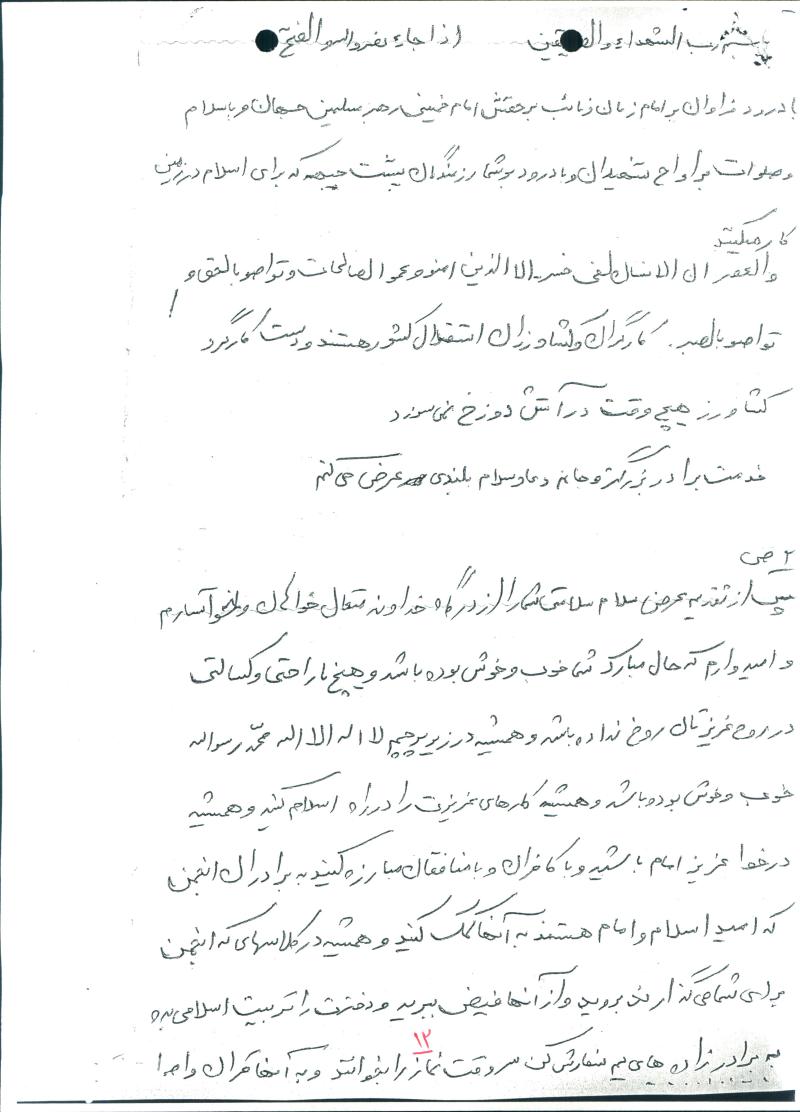 بسم رب الشهداء والصدیقین اذا جاء نصرالله والفتح
با درود فراوان بر امام زمان و نائب برحقش امام خمینی رهبر مسلمین جهان و با سلام
و صلوات بر ارواح شهیدان و با درود بر شما رزمندگان پشت جبهه که برای اسلام در زمین
کار میکنید
والعصر ان الانسان لفی خسر الا الذین امنو و عملو الصالحات و تواصو بالحق و
تواصو بالصبر. کارگران و کشاورزان استقلال کشور هستند و دست کارگر و
کشاورز هیچ وقت در آتش دوزخ نمی سوزد
خدمت برادر بزرگتر و دعا و سلام بلندی عرض می کنم
۲ ص
پس از تقدیم عرض سلام سلامتی شما را از درگاه خداوند متعال خواهان و خواستارم
و امیدوارم که حال مبارک شما خوب و خوش بوده باشد و هیچ ناراحتی و کسالتی
در روح عزیزتان روخ نداده باشد و همیشه در زیر پرچم لا اله الا اله محمد رسواله
خوب و خوش بوده باشد و همیشه کارهای عزیزت را در راه اسلام کنید و همیشه
در خط عزیز امام باشید و با کافران و با منافقان مبارزه کنید به برادران انجمن
که امید اسلام و امام هستند به آنها کمک کنید و همیشه در کلاسهای که انجمن
برای شما می گذارند بروید و از آنها فیض ببرید و دخترت را تربیت اسلامی بده
به برادرزاده های یم سفارش کن سر وقت نماز را بخوانند و به آنها قران و
۱۲